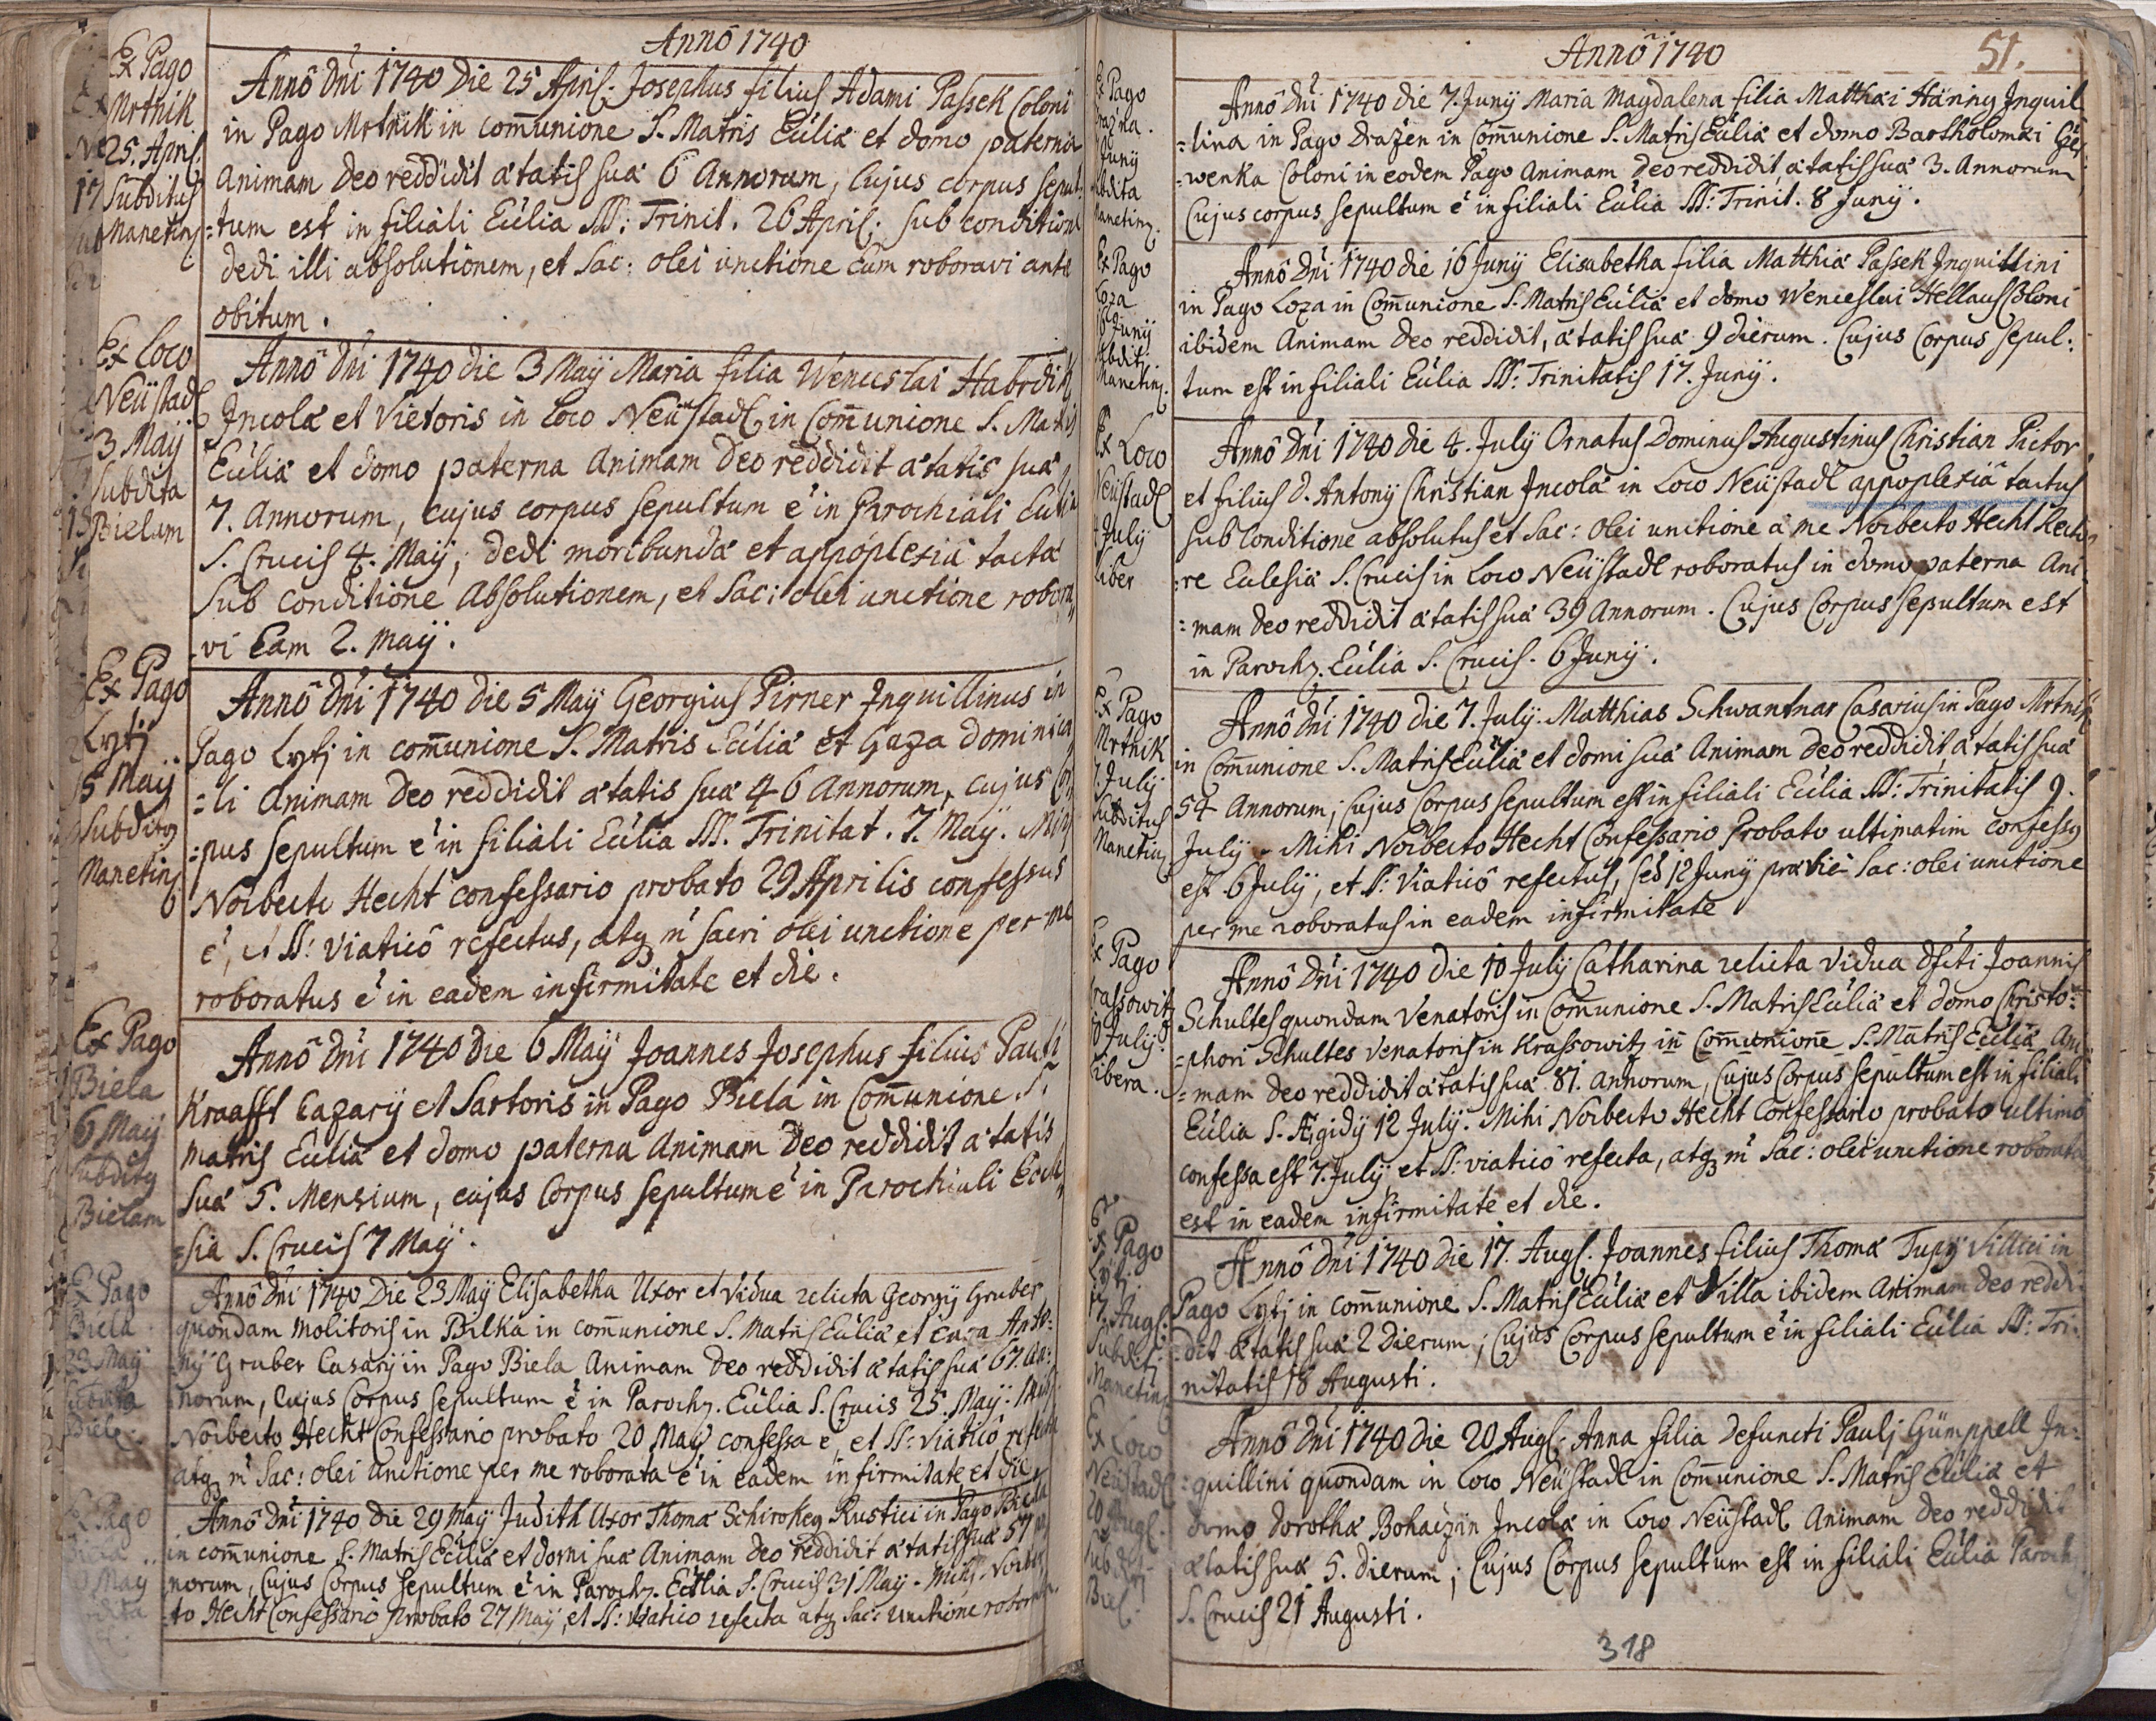 Annô 1740
Ex Pago
Mrtnik
25. April.
Subditus
Manetin.
Annô Dni 1740 Die 25 April. Josephus filius Adami Passek Coloni
in Pago Mrtnik in com̄unione S. Matris Eúliæ et domo paterna
Animam Deo reddidit ætatis suæ 6 Annorum, Cujus corpus sepul-
=tum est in filiali Eúlia SS: Trinit. 26 April: sub conditione
dedi illi absolutionem, et Sac: olei unctione eum roboravi ante
obitum.
Ex Loco
Neüstadl
3 Maÿ
Subdita
Bielam
Annô Dni 1740 die 3 Maÿ Maria filia Wenceslai Habrdik
Incolæ et Vietoris in Loco Neüstadl in Com̄unione S. Matris
Eúliæ et domo paterna Animam Deo reddidit ætatis suæ
7. Annorum, cujus corpus sepultum é in Parochiali Eúlia
S. Crucis 4. Maÿ; dedi moribundæ et appoplexiâ tactæ
sub conditione Absolutionem, et Sac: olei unctione robora
=vi Eam 2. maÿ.
Ex Pago
Lytj
5 Maÿ
Subditq
Manetinq
Annô Dni 1740 die 5 Maÿ Georgius Pirner Inquillinus in
Pago Lytj in com̄unione S. Matris Eúliæ et Gaza dominica
=li Animam Deo reddidit ætatis suæ 46 Annorum, cujus Cor
=pus sepultum é in filiali Eúlia SS. Trinitat. 7. Maÿ. Mihi
Norberto Hecht confessario probato 29 Aprilis confessus
é, et SS: viaticô refectus, atq m̃ sacri olei unctione per me
roboratus é in eadem infirmitate et die.
Ex Pago
Biela
6 Maÿ
Subditq
Bielam
Annô Dni 1740 die 6 Maÿ Joannes Josephus filius Pauli
Kraafft Cazarÿ et Sartoris in Pago Biela in Com̄unione S.
Matris Eúliæ et domo paterna Animam Deo reddidit ætatis
suæ 5. Mensium, cujus Corpus sepultum é in Parochiali Eccle
=sia S. Crucis 7 Maÿ.
Ex Pago
Biela
23 Maÿ
Subdita
Biele.
Annô Dni 1740 Die 23 Maÿ Elisabetha Uxor et Vidua relicta Georgÿ Gruber
quondam Molitoris in Bilka in com̄unione S. Matris Eúliæ et Caza Anto=
=nÿ Gruber Casarÿ in Pago Biela Animam Deo reddidit ætatis suæ 67. An=
norum, Cujus Corpus sepultum é in Paroch. Eúlia S. Crucis 25. Maÿ. Mihi
Norberto Hecht Confessario probato 20 Maÿ confessa é, et SS: viaticô refecta
atq m̃ Sac: olei unctione per me roborata é in eadem infirmitate et die.
Pago
Maÿ
Annô Dni 1740 Die 29 Maÿ Judith Uxor Thomæ Schirokeg Rustici in Pago Biela
in com̄unione S. Matris Eúliæ et domi suæ Animam Deo reddidit ætatis suæ 57
norum, Cujus Corpus sepultum é in Paroch. Eúlia S. Crucis 31 Maÿ. Mihi Norber
to Hecht Confessario Probato 27 Maÿ, et SS: viatico refecta atq Sac: unctione roborata
Annô 1740
51.
Ex Pago
Junÿ
Manetinq.
Annô Dni 1740 die 7. Junÿ Maria Magdalena filia Matthæi Hänny Inquil
=lina in Pago Drazen in Com̄unione S. Matris Eúliæ et domo Bartholomæi Čer
=wenka Coloni in eodem Pago Animam Deo reddidit, ætatis suæ 3. Annorum
Cujus corpus sepultum é in filiali Eúlia SS: Trinit. 8 Junÿ.
Ex Pago
Loza
16 Junÿ
Subditj
Manetinq.
Annô Dni 1740 die 16 Junÿ Elisabetha filia Matthiæ Passek Inquillini
in Pago Loza in Com̄unione S. Matris Eúliæ et domo Wenceslai Hellaus Coloni
ibidem Animam Deo reddidit, ætatis suæ 9 dierum. Cujus Corpus sepul:
tum est in filiali Eúlia SS: Trinitatis 17. Junÿ.
Ex Loco
Neüstadl
4 Julÿ
Liber
Annô Dni 1740 die 4. Julÿ Ornatus Dominus Augustinus Christian Pictor
et filius D. Antonÿ Christian Incolæ in Loco Neüstadl appoplexiâ tactus
sub Conditione absolutus et Sac: olei unctione a me Norberto Hecht Recto
=re Eclesiæ S. Crucis in Loco Neüstadl roboratus in domo paterna Ani
=mam Deo reddidit ætatis suæ 39 Annorum. Cujus Corpus sepultum est
in Paroch. Eúlia S. Crucis. 6 Junÿ.
Ex Pago
Mrtnik
7 Julÿ
Subditus
Manetinq
Annô Dni 1740 die 7. Julÿ. Matthias Schwantnar Casarius in Pago Mrtnik
in Com̄unione S. Matris Eúliæ et domi suæ Animam Deo reddidit, ætatis suæ
54 Annorum; Cujus Corpus sepultum est in filiali Eúlia SS: Trinitatis 9.
Julÿ. Mihi Norberto Hecht Confessario Probato ultimatim confessq
est 6 Julÿ, et SS: Viaticô refectus, sed 12 Junÿ prævie Sac: olei unctione
per me roboratus in eadem infirmitate
Ex Pago
Krassowitz
10 Julÿ.
Libera.
Annô Dni 1740 die 10 Julÿ Catharina relicta vidua dfcti Joannis
Schultes quondam Venatoris in Com̄unione S. Matris Eúliæ et domo Christo=
=phori Schultes Venatoris in Krassowitz in Com̄unione S. Matris Eúliæ Ani
=mam Deo reddidit ætatis suæ 81. Annorum, Cujus Corpus sepultum est in filiali
Eúlia S. Ægidÿ 12 Julÿ. Mihi Norberto Hecht Confessario probato ultimo
confessa est 7. Julÿ, et SS: viaticô refecta, atq m̃ Sac: olei unctione roborata
est in eadem infirmitate et die.
Ex Pago
Lytj
17. Augs.
Subditj
Manetinq
Annô Dni 1740 die 17. Augs. Joannes filius Thomæ Tupÿ Villici in
Pago Lytj in com̄unione S. Matris Eúliæ et Villa ibidem Animam Deo reddi
=dit ætatis suæ 2 Dierum; Cujus Corpus sepultum é in filiali Eúlia SS: Tri=
nitatis 18 Augusti.
Ex Loco
Neüstadl
20 Augs.
Subditj
Biel.
Annô Dni 1740 die 20 Augs. Anna filia defuncti Paulj Gümppell In=
=quillini quondam in Loco Neüstadl in Com̄unione S. Matris Eúliæ et
domo Dorothæ Bohaczin Incolæ in Loco Neüstadl Animam Deo reddidit
ætatis suæ 5. dierum; Cujus Corpus sepultum est in filiali Eúlia Paroch
S. Crucis 21 Augusti.
318